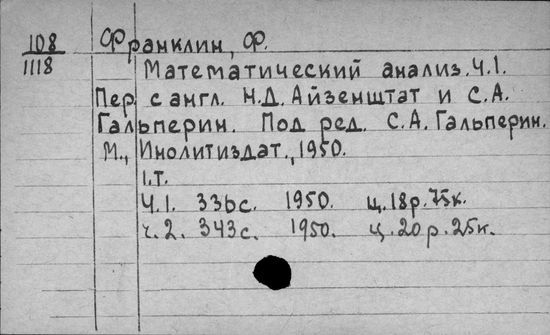 108 Франклин, Ф.
1118 Математический анализ. Ч.1.
Пер с англ. Н.Д. Айзенштат и С.А.
Гальперин. Под ред. С.А. Гальперин.
М., Инолитиздат, 1950.
1.т.
Ч.1. 336с. 1950. ц.18р.75к.
ч.2. 343с. 1950. ц.20р.25к.